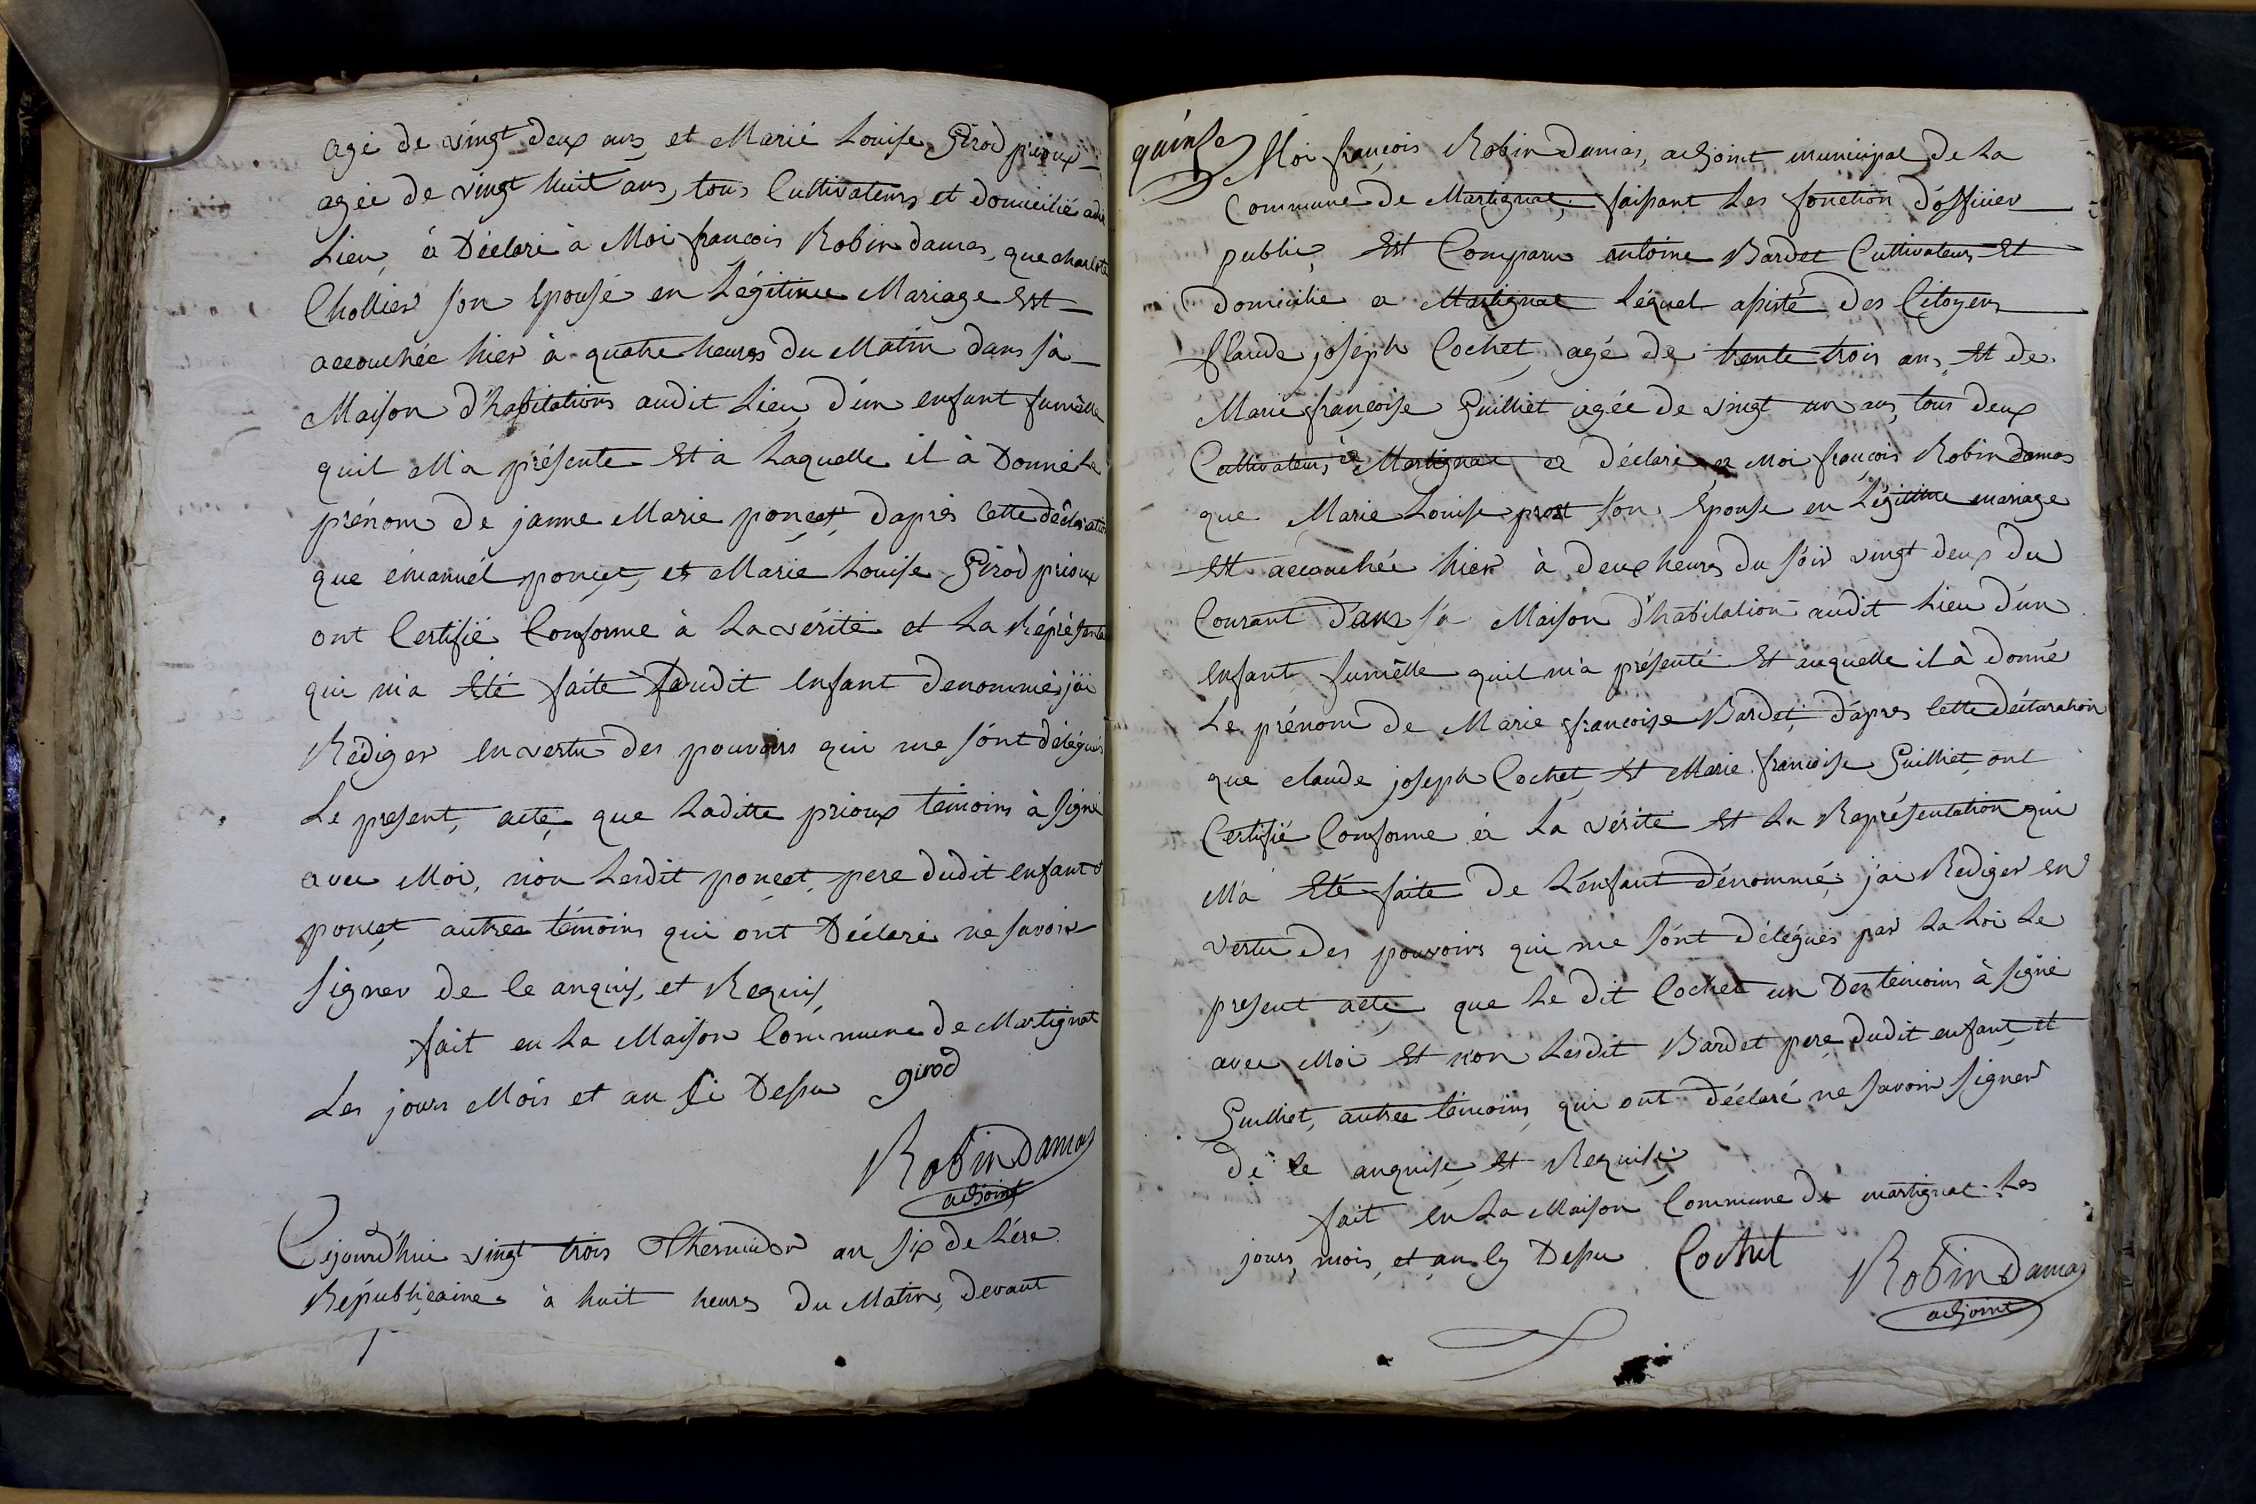 agé de vingt deux ans et Marié Louise Girod prioux
agée de vingt huit ans, tous Cultivateurs et domicilié audit
Lieu, à Déclaré à Moi francois Robin damas, que charlote
Chollier son Epouse en Légitime Mariage Est
accouchée hier à quatre heures du Matin dans sa
Maison d'habitations audit Lieu d'un enfant fumelle
quil M'a présente Et à Laquelle il à Donné Le
prénom de janne Marie ponçet, daprès Cette déclaration
que émanuél ponçet, et Marie Louise Girod prioux
ont Certifié Conforme à La vérité et La Réprésenta
qui m'a Eté faite dudit enfant denommé, jai
Rédiger en vertu des pouvoirs qui me sont délégués
Le present, acte, que Laditte prioux témoins à signé
avec Moi, non Lesdit ponçet, pere dudit enfant et
ponçet autres témoins qui ont Déclaré ne savoir
signer de le anquis, et Requis,
fait en La Maison Commune de Martignat
Les jours Mois et an si Dessu girod
Robin Damas
adjoint
Cejourd'hui vingt trois Thermidor an six de L'ére
Républicaine à huit heures du Matin, devant
quinse Moi françois Robin Damas, adjoint municipal de La
Commune de Martignat, faisant Les fonction d'officier
public, Est Comparu antoine Bardet Cultivateur Et
domicilie a Martignat Léquel assisté des Citoyens
Claude joseph Cochet, agé de trente trois ans, Et de
Marie françoise Guilliet agée de vingt un ans, tous deux
Cultivateurs, à Martignat a déclaré a Moi françois Robin damas
que Marie Louise prost son Epouse en Légitime mariage
Est accouchée hier à deux heures du soir vingt deux du
Courant dans sa Maison d'habitation audit Lieu d'un
enfant fumêlle quil m'a présenté Et auquelle il à donné
Le prénom de Marie françoise Bardet, d'apres Cette déclaration
que claude joseph Cochet, Et Marie françoise Guilliet, ont
Certifié Conforme à La vérité Et La Représentation qui
M'a Eté faite de L'énfant dénommé, j'ai Rediger en
vertu des pouvoirs qui me sont délégués par La Loi Le
present acte que Le dit Cochet un Des témoins à signé
avec Moi Et non Lesdit Bardet pere dudit enfant, et
Guilliet, autree témoins, qui ont déclaré ne savoir signer
de le anquise, Et Requise,
fait en La Maison Commune de martignat Les
jours, mois, et an cy Dessu Cochet
Robin Damas
adjoint